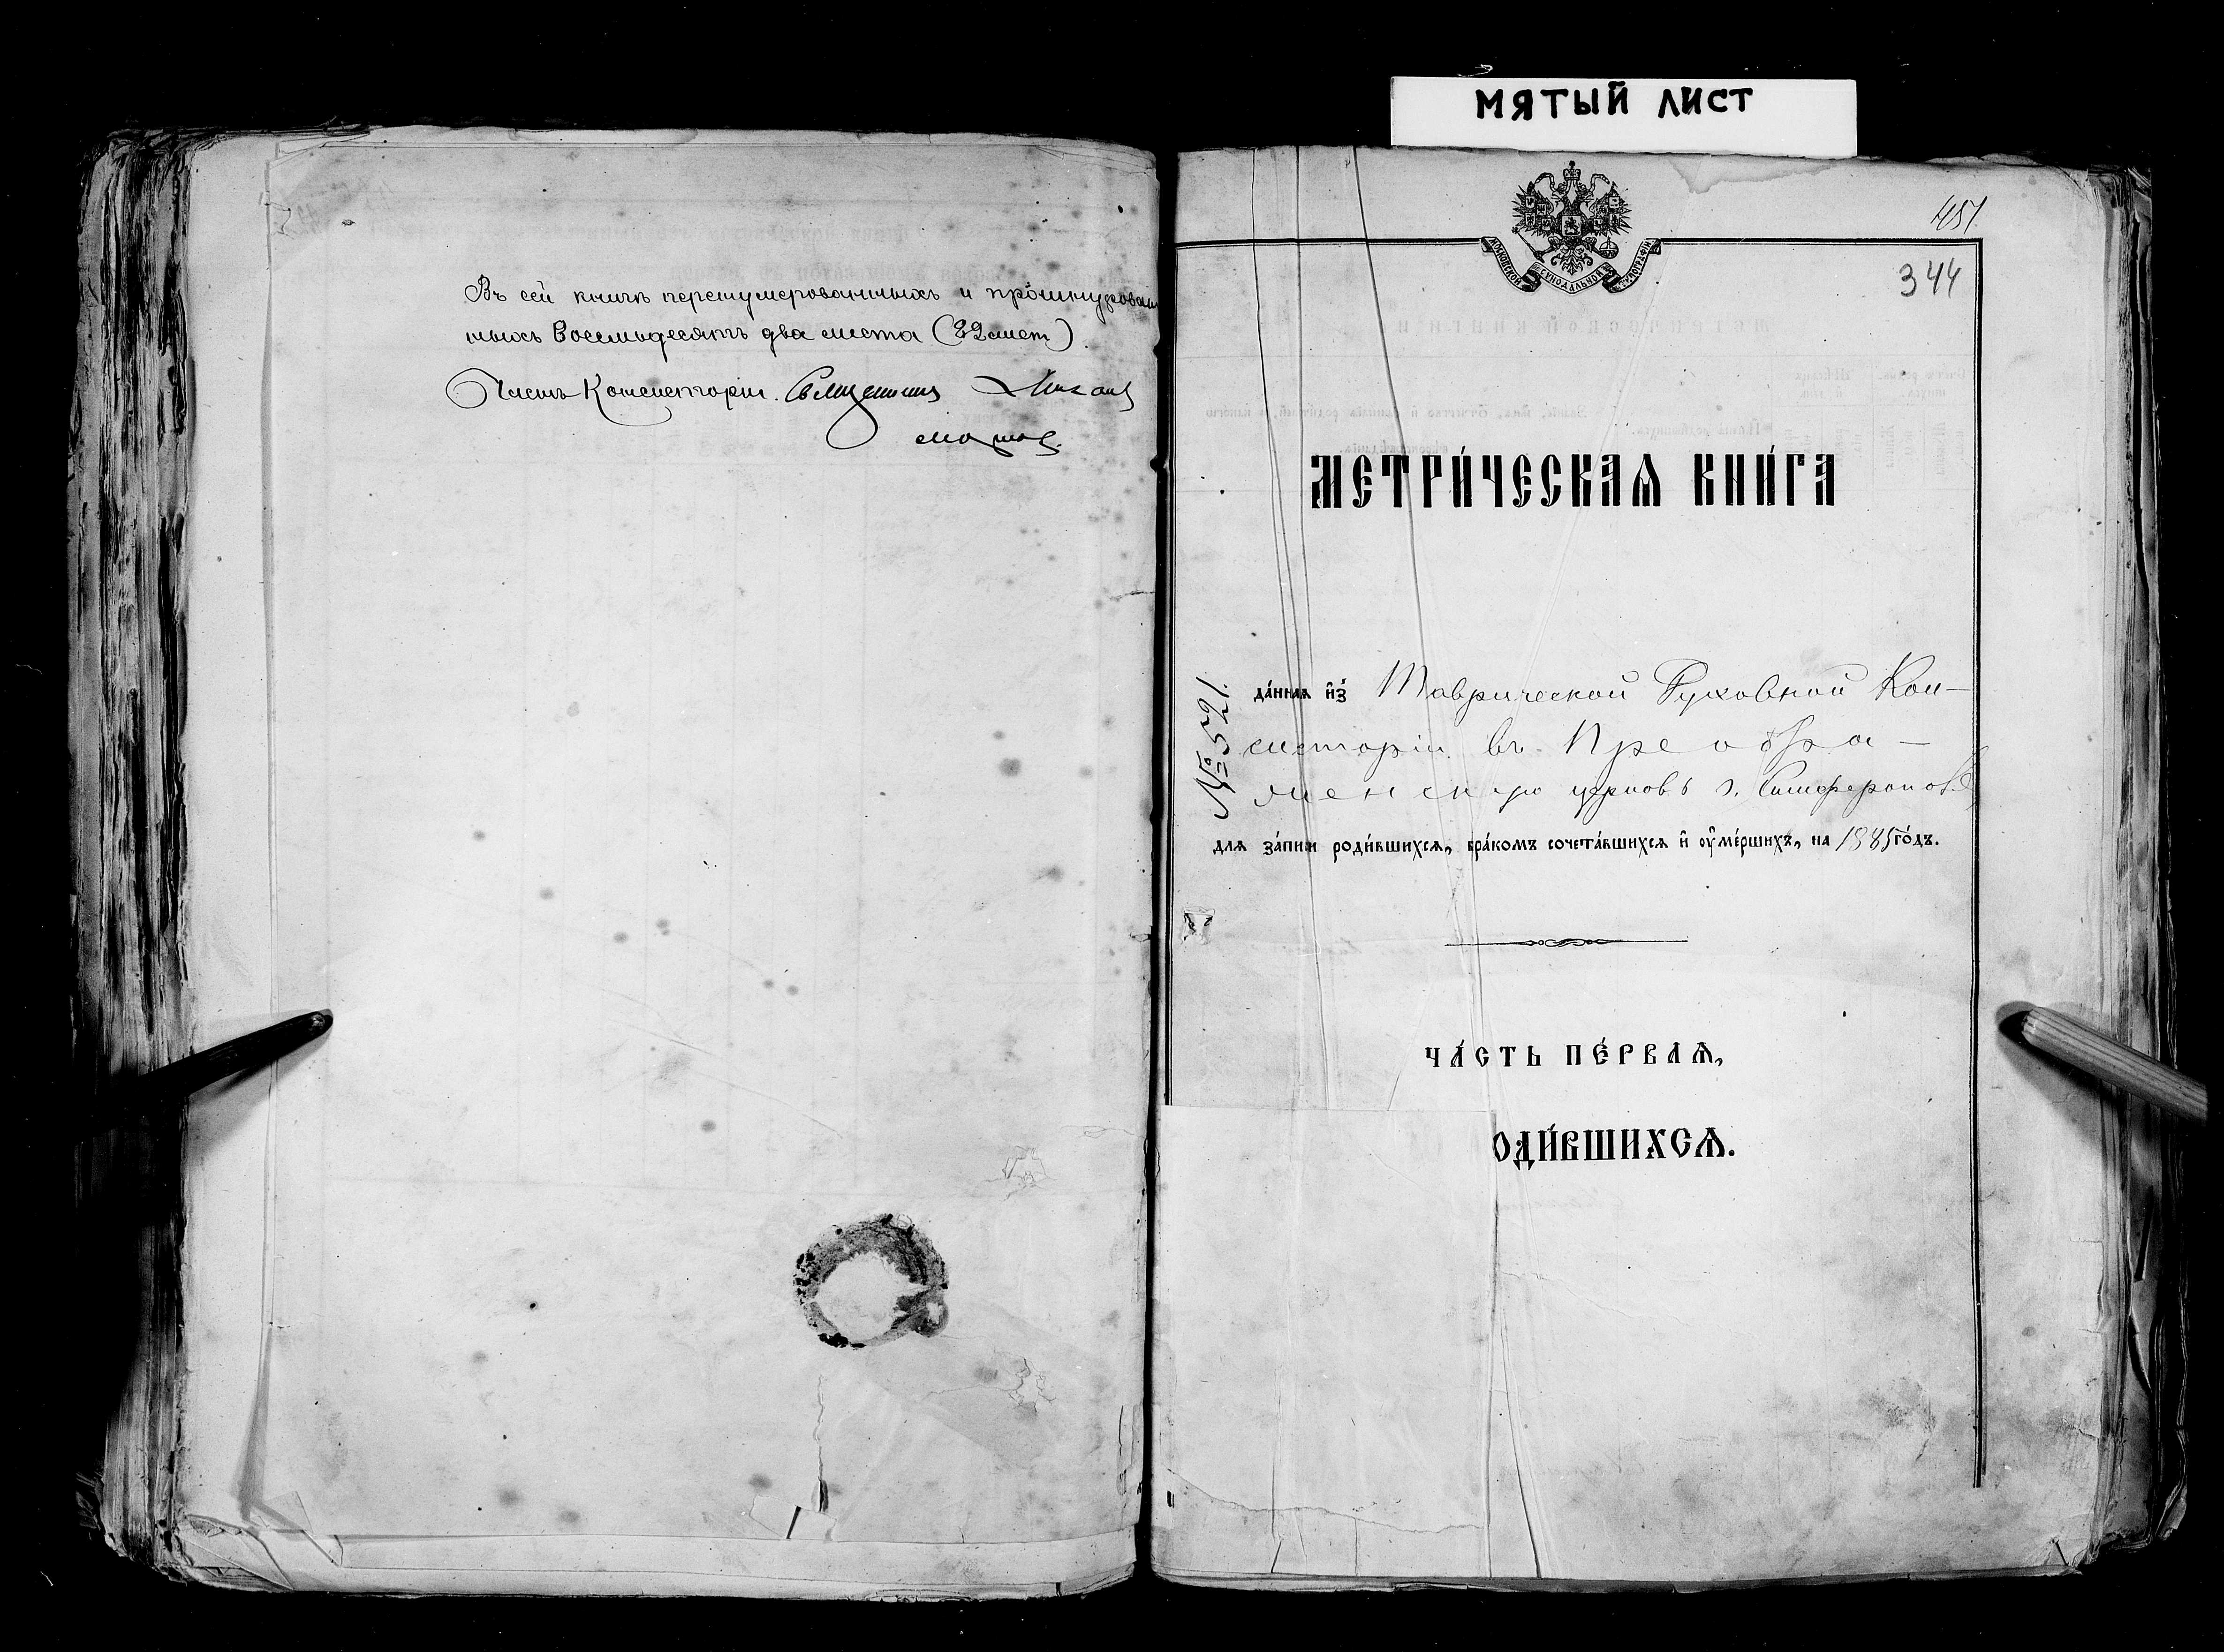 Въ сей книгѣ перенумерованныхъ и прошнурован
ныхъ восемьдесятъ два листа (82 лист)
Членъ Консисторіи Священникъ
МЯТЫЙ ЛИСТ
МОСКОВСКОЙ СѴНОДАЛЬНОЙ ТИПОГРАФІИ
451
344
МЕТРИ́ЧЕСКАѦ КНИ́ГА
№ 521.
да́ннаѧ и҆з̾ Таврической Духовной Кон-
систоріи въ Преобра-
женскую церковь г. Симферополя
для за́писи роди́вшихсѧ, бра́комъ сочета́вшихсѧ и҆ оу҆ме́ршихъ, на 1885 го́дъ.
ЧА́СТЬ ПЕ́РВАѦ,
ОДИ́ВШИХСѦ.